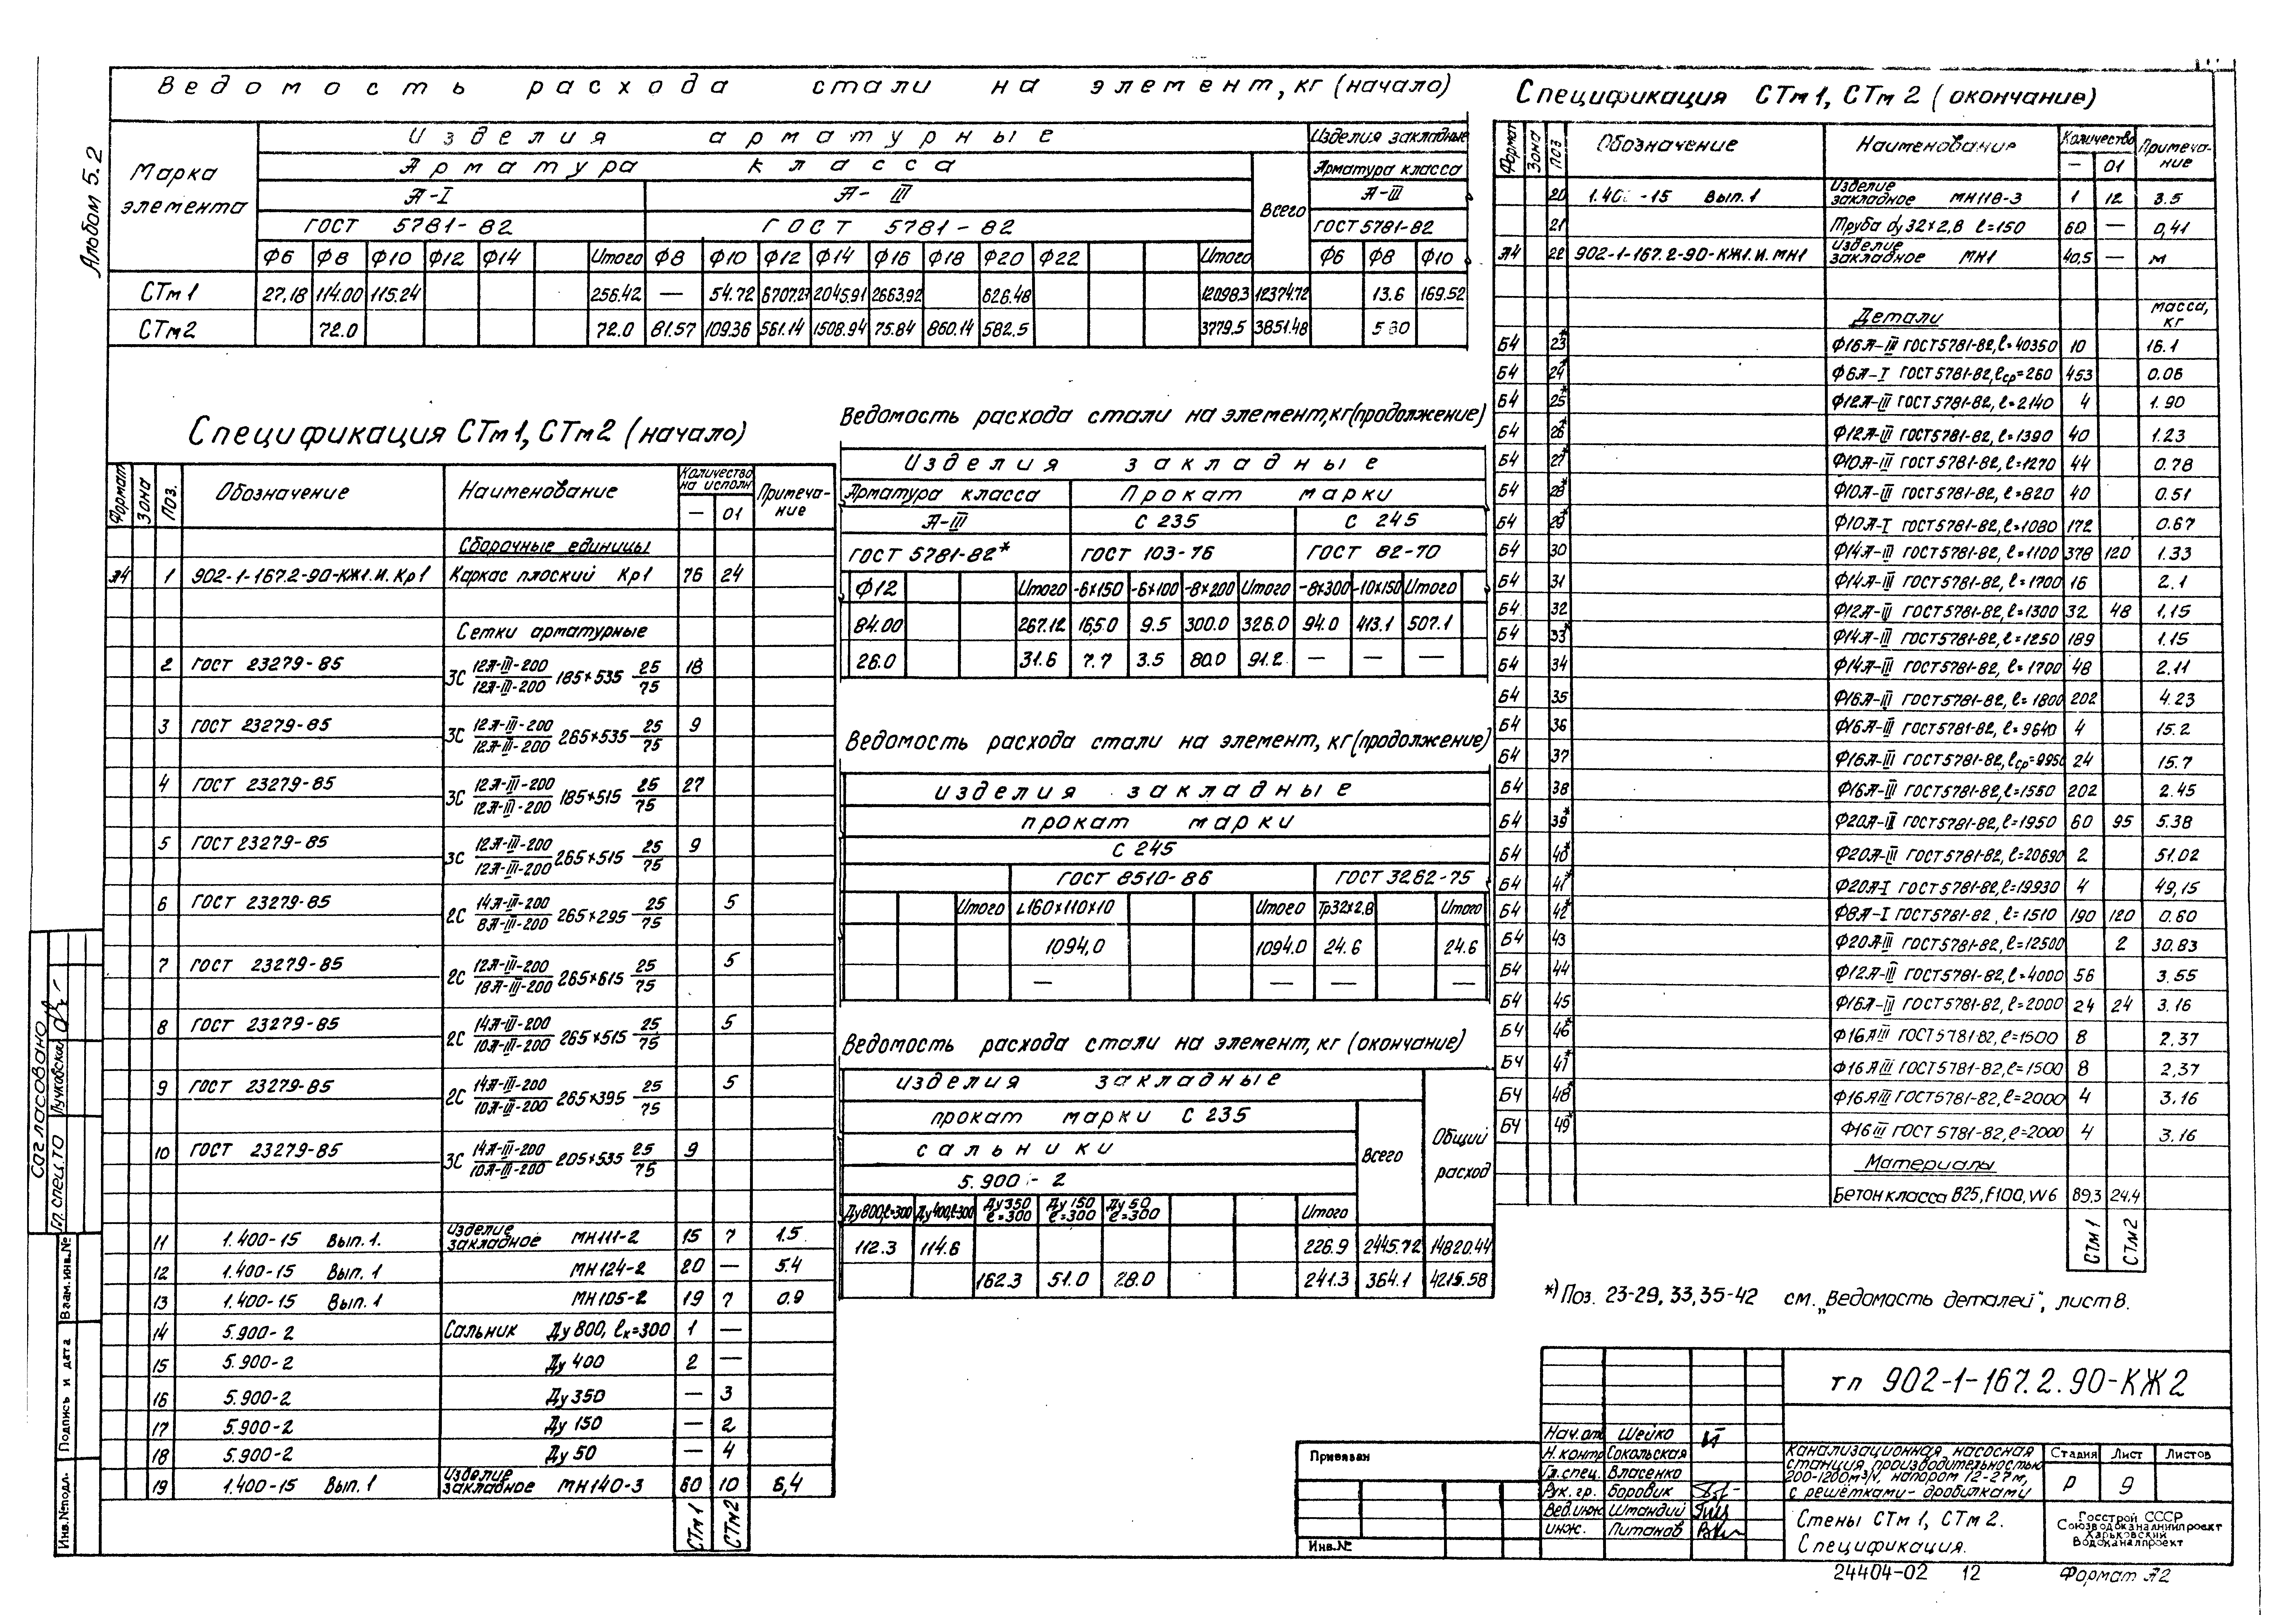 Альбом 5.2
Ведомость расхода стали на элемент, кг (начало)
Марка элемента
Изделия арматурные
Изделия закладные
Арматура класса
Всего
Арматура класса
А-I
А-III
А-III
ГОСТ 5781-82
ГОСТ 5781-82
ГОСТ 5781-82
Ф6 Ф8 Ф10 Ф12 Ф14 Итого Ф8 Ф10 Ф12 Ф14 Ф16 Ф18 Ф20 Ф22 Итого Ф6 Ф8 Ф10
СТм1 27,18 114.00 115.24 256.42 — 54.72 6707.27 2045.91 2663.92 626.48 12098.3 12374.72 13.6 169.52
СТм2 72.0 72.0 81.57 109.36 561.14 1508.94 75.84 860.14 582.5 3779.5 3851.48
Спецификация СТм1, СТм2 (начало)
Формат Зона Поз. Обозначение Наименование Количество на исполн Примечание
— 01
Сборочные единицы
А4 1 902-1-167.2-90-КЖ1.И.Кр1 Каркас плоский Кр1 76 24
Сетки арматурные
2 ГОСТ 23279-85 3С 12А-III-200/12А-III-200 185×535 25/75 18
3 ГОСТ 23279-85 3С 12А-III-200/12А-III-200 265×535 25/75 9
4 ГОСТ 23279-85 3С 12А-III-200/12А-III-200 185×515 25/75 27
5 ГОСТ 23279-85 3С 12А-III-200/12А-III-200 265×515 25/75 9
6 ГОСТ 23279-85 2С 14А-III-200/8А-III-200 265×295 25/75 5
7 ГОСТ 23279-85 2С 12А-III-200/18А-III-200 265×615 25/75 5
8 ГОСТ 23279-85 2С 14А-III-200/10А-III-200 265×515 25/75 5
9 ГОСТ 23279-85 2С 14А-III-200/10А-III-200 265×395 25/75 5
10 ГОСТ 23279-85 3С 14А-III-200/10А-III-200 205×535 25/75 9
11 1.400-15 Вып. 1. Изделие закладное МН111-2 15 7 1.5
12 1.400-15 Вып. 1 МН124-2 20 — 5.4
13 1.400-15 Вып. 1 МН105-2 19 7 0.9
14 5.900-2 Сальник Ду 800, ℓк=300 1 —
15 5.900-2 Ду 400 2 —
16 5.900-2 Ду 350 — 3
17 5.900-2 Ду 150 — 2
18 5.900-2 Ду 50 — 4
19 1.400-15 Вып. 1 Изделие закладное МН140-3 60 10 6,4
СТм1 СТм2
Ведомость расхода стали на элемент, кг (продолжение)
Изделия закладные
Арматура класса Прокат марки
А-III С 235 С 245
ГОСТ 5781-82* ГОСТ 103-76 ГОСТ 82-70
Ф12 Итого -6×150 -6×100 -8×200 Итого -8×300 -10×150 Итого
84.00 267.12 16.5.0 9.5 300.0 326.0 94.0 413.1 507.1
26.0 31.6 7.7 3.5 80.0 91.2 — — —
Ведомость расхода стали на элемент, кг (продолжение)
изделия закладные
прокат марки
С 245
ГОСТ 8510-86 ГОСТ 3262-75
Итого L160×110×10 Итого Тр32×2,8 Итого
1094,0 1094.0 24.6 24.6
— — — —
Ведомость расхода стали на элемент, кг (окончание)
изделия закладные
прокат марки С 235
Всего
Общий расход
сальники
5.900-2
Ду800,ℓ=300 Ду400,ℓ=300 Ду350 ℓ=300 Ду150 ℓ=300 Ду50 ℓ=300 Итого
112.3 114.6 226.9 2445.72 14820.44
162.3 51.0 28.0 241.3 364.1 4215.58
Спецификация СТм1, СТм2 (окончание)
Формат Зона Поз Обозначение Наименование Количество Примечание
— 01
20 -15 Вып. 1 Изделие закладное МН118-3 1 12 3.5
21 Труба dу 32×2,8 ℓ=150 60 — 0,41
А4 22 902-1-167.2-90-КЖ1.И.МН1 Изделие закладное МН1 40,5 — м
Детали масса, кг
Б4 23* Ф16А-III ГОСТ 5781-82, ℓ=40350 10 16.1
Б4 24* Ф6А-I ГОСТ 5781-82, ℓср=260 453 0.06
Б4 25* Ф12А-III ГОСТ 5781-82, ℓ=2140 4 1.90
Б4 26* Ф12А-III ГОСТ 5781-82, ℓ=1390 40 1.23
Б4 27* Ф10А-III ГОСТ 5781-82, ℓ=1270 44 0.78
Б4 28* Ф10А-III ГОСТ 5781-82, ℓ=820 40 0.51
Б4 29* Ф10А-I ГОСТ 5781-82, ℓ=1080 172 0.67
Б4 30 Ф14А-III ГОСТ 5781-82, ℓ=1100 378 120 1.33
Б4 31 Ф14А-III ГОСТ 5781-82, ℓ=1700 16 2.1
Б4 32 Ф12А-III ГОСТ 5781-82, ℓ=1300 32 48 1,15
Б4 33* Ф14А-III ГОСТ 5781-82, ℓ=1250 189 1.15
Б4 34 Ф14А-III ГОСТ 5781-82, ℓ=1700 48 2.11
Б4 35 Ф16А-III ГОСТ 5781-82, ℓ=1800 202 4.23
Б4 36 Ф16А-III ГОСТ 5781-82, ℓ=9640 4 15.2
Б4 37 Ф16А-III ГОСТ 5781-82, ℓср=9950 24 15.7
Б4 38 Ф16А-III ГОСТ 5781-82, ℓ=1550 202 2.45
Б4 39* Ф20А-III ГОСТ 5781-82, ℓ=1950 60 95 5.38
Б4 40* Ф20А-III ГОСТ 5781-82, ℓ=20690 2 51.02
Б4 41* Ф20А-I ГОСТ 5781-82, ℓ=19930 4 49,15
Б4 42* Ф8А-I ГОСТ 5781-82, ℓ=1510 190 120 0.60
Б4 43 Ф20А-III ГОСТ 5781-82, ℓ=12500 2 30.83
Б4 44 Ф12А-III ГОСТ 5781-82, ℓ=4000 56 3,55
Б4 45 Ф16А-III ГОСТ 5781-82, ℓ=2000 24 24 3.16
Б4 46* Ф16АIII ГОСТ 5781-82, ℓ=1500 8 2,37
Б4 47* Ф16АIII ГОСТ 5781-82, ℓ=1500 8 2,37
Б4 48* Ф16АIII ГОСТ 5781-82, ℓ=2000 4 3.16
Б4 49* Ф16III ГОСТ 5781-82, ℓ=2000 4 3.16
Материалы
Бетон класса В25, F100, W6 89.3 24.4
СТм1 СТм2
*) Поз. 23-29, 33, 35-42 см. „Ведомость деталей", лист 8.
тп 902-1-167.2.90-КЖ2
Нач. отд Шейко
Н. контр Сокольская
Гл. спец. Власенко
Рук. гр. Боровик
Вед. инж Штандий
инж. Питанов
Канализационная насосная
станция производительностью
200-1200м³/ч, напором 12-27м,
с решётками-дробилками
Стадия Лист Листов
Р 9
Стены СТм1, СТм2.
Спецификация.
Госстрой СССР
Союзводоканалниипроект
Харьковский
Водоканалпроект
Привязан
Инв.№
24404-02 12
Формат А2
Согласовано
Гл. спец ТО
Взам.инв.№
Подпись и дата
Инв.№подл.